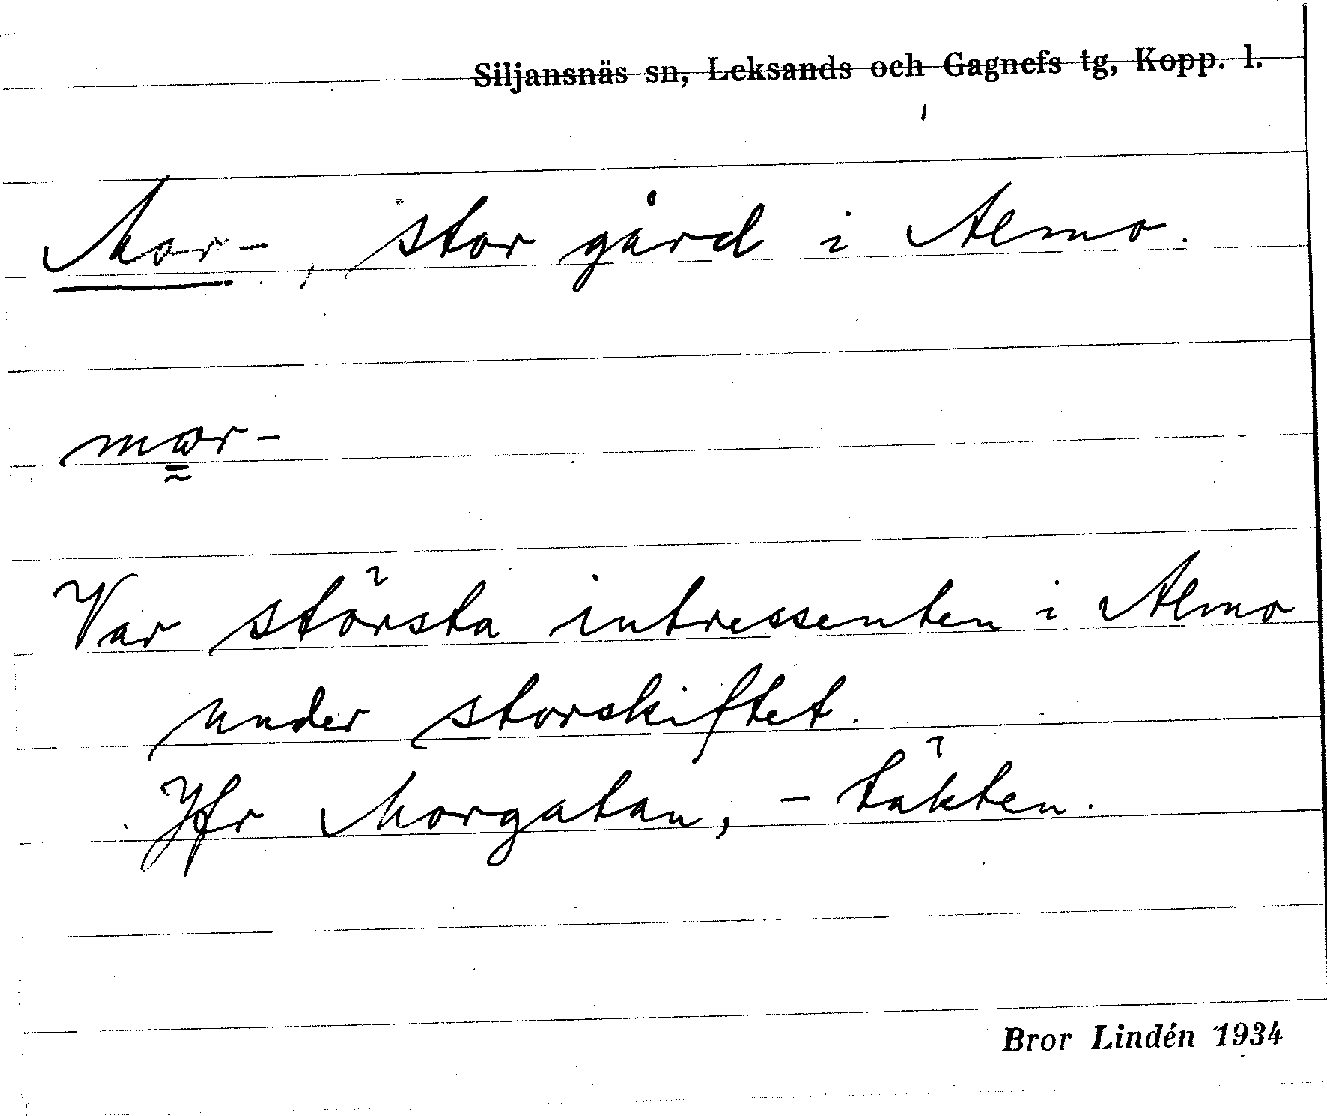 Siljansnäs sn, Leksands och Gagnefs tg, Kopp. l.
Mor-, stor gård i Almo.
mor-
Var största intressenten i Almo
under storskiftet.
Jfr Morgatan, -täkten.
Bror Lindén 1934